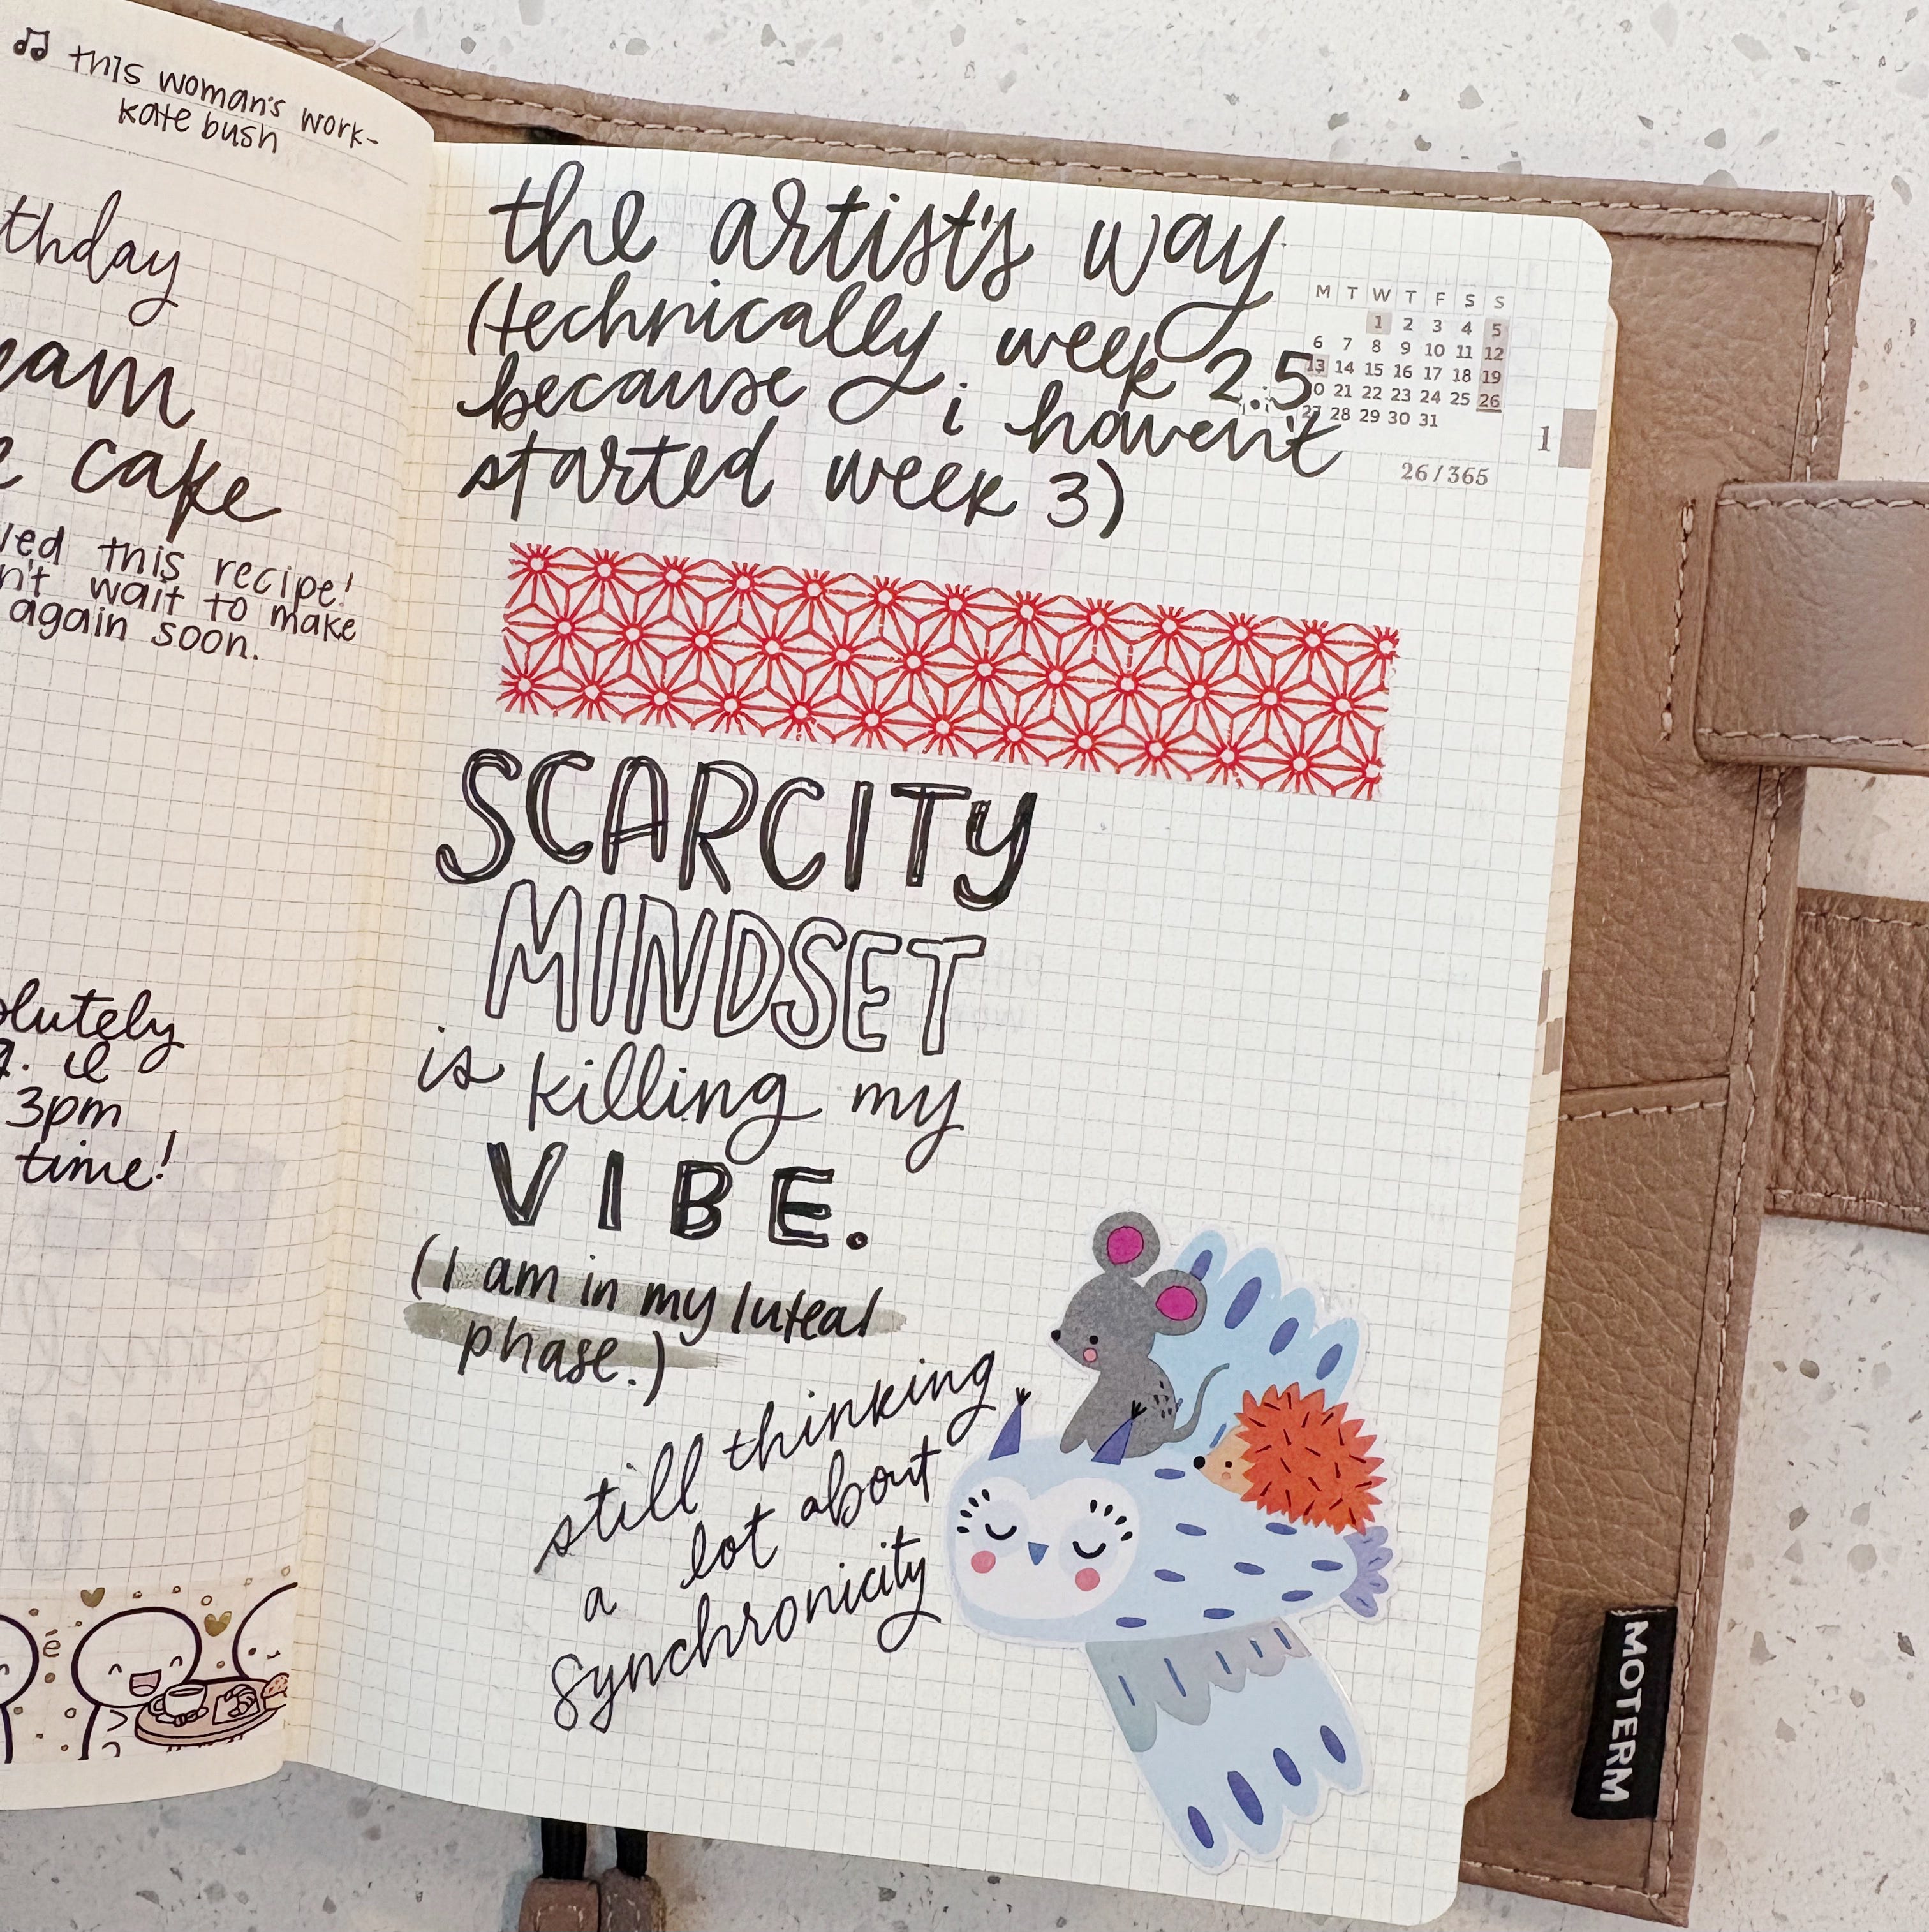 ♫ this woman's work-
kate bush
cake
this recipe!
wait to make
again soon.
3pm
time!
the artist's way
(technically week 2.5
because i haven't
started week 3)
M T W T F S S
1 2 3 4 5
6 7 8 9 10 11 12
13 14 15 16 17 18 19
21 22 23 24 25 26
27 28 29 30 31
1
26/365
SCARCITY
MINDSET
is killing my
VIBE.
(I am in my luteal
phase.)
still thinking
a lot about
synchronicity
MOTERM